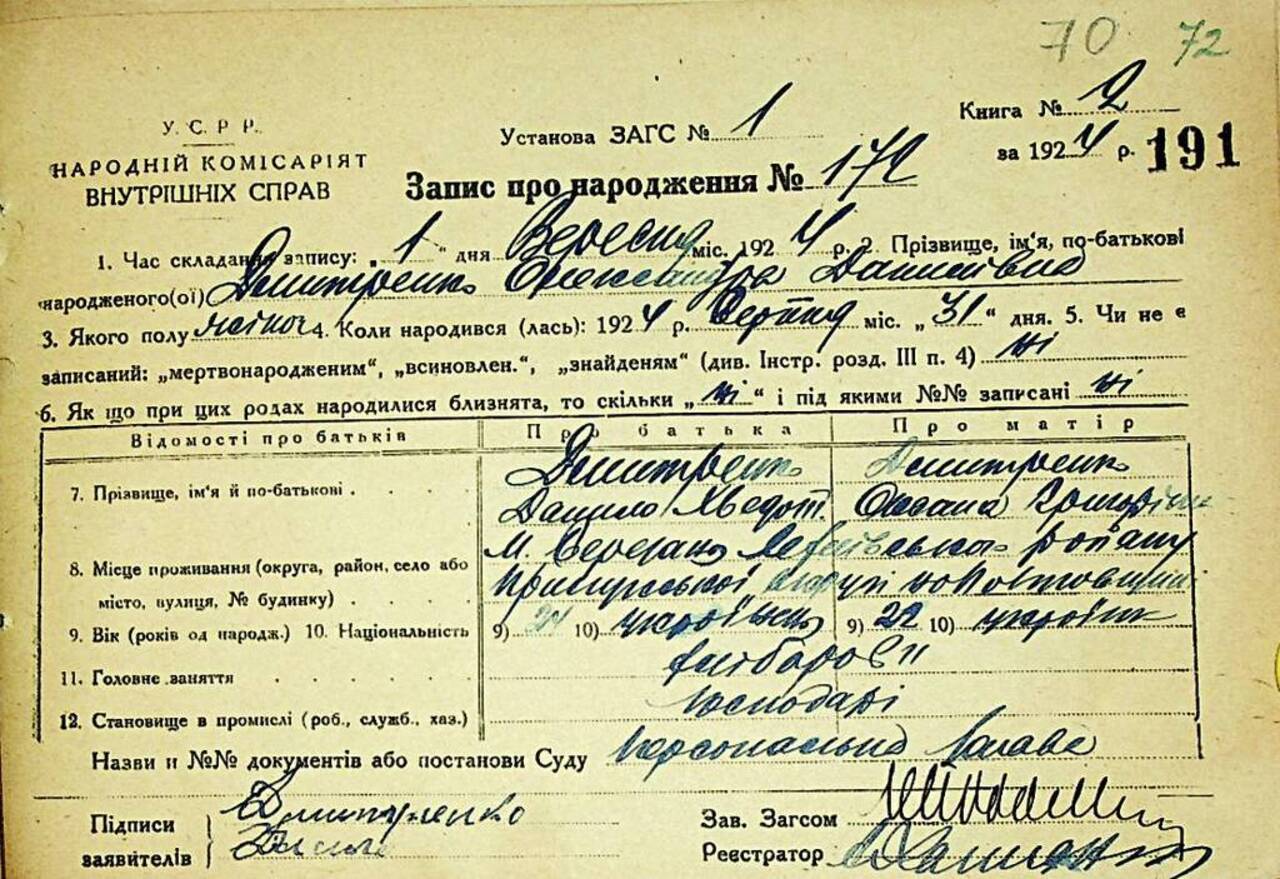 70 72
У. С. Р. Р.
НАРОДНІЙ КОМІСАРІЯТ
ВНУТРІШНІХ СПРАВ
Установа ЗАГС № 1
Книга № 2
за 1924 р. 191
Запис про народження № 172
1. Час складання запису: „1“ дня Вересня міс. 1924 р. 2. Прізвище, ім'я, по-батькові
народженого(ої) Дмитренко Олександра Данилівна
3. Якого полу жіноч 4. Коли народився (лась): 1924 р. Серпня міс. „31“ дня. 5. Чи не є
записаний: „мертвонародженим“, „всиновлен.“, „знайденям“ (див. Інстр. розд. III п. 4) ні
6. Як що при цих родах народилися близнята, то скільки „ні“ і під якими №№ записані ні
Відомості про батьків Про батька Про матір
7. Прізвище, ім'я й по-батькові . . . . Дмитренко Дмитренко
Данило Хведот. Оксана Григорівна
8. Місце проживання (округа, район, село або
місто, вулиця, № будинку) . . . .
М. Березань району
Прилуцької округи на Полтавщині
9. Вік (років од народж.) 10. Національність 9) 24 10) українець 9) 22 10) українк
11. Головне заняття . . . . . хлібороби
12. Становище в промислі (роб., служб., хаз.) господарі
Назви и №№ документів або постанови Суду персональна
Підписи
заявителів
Дмитренко
Зав. Загсом
Реєстратор